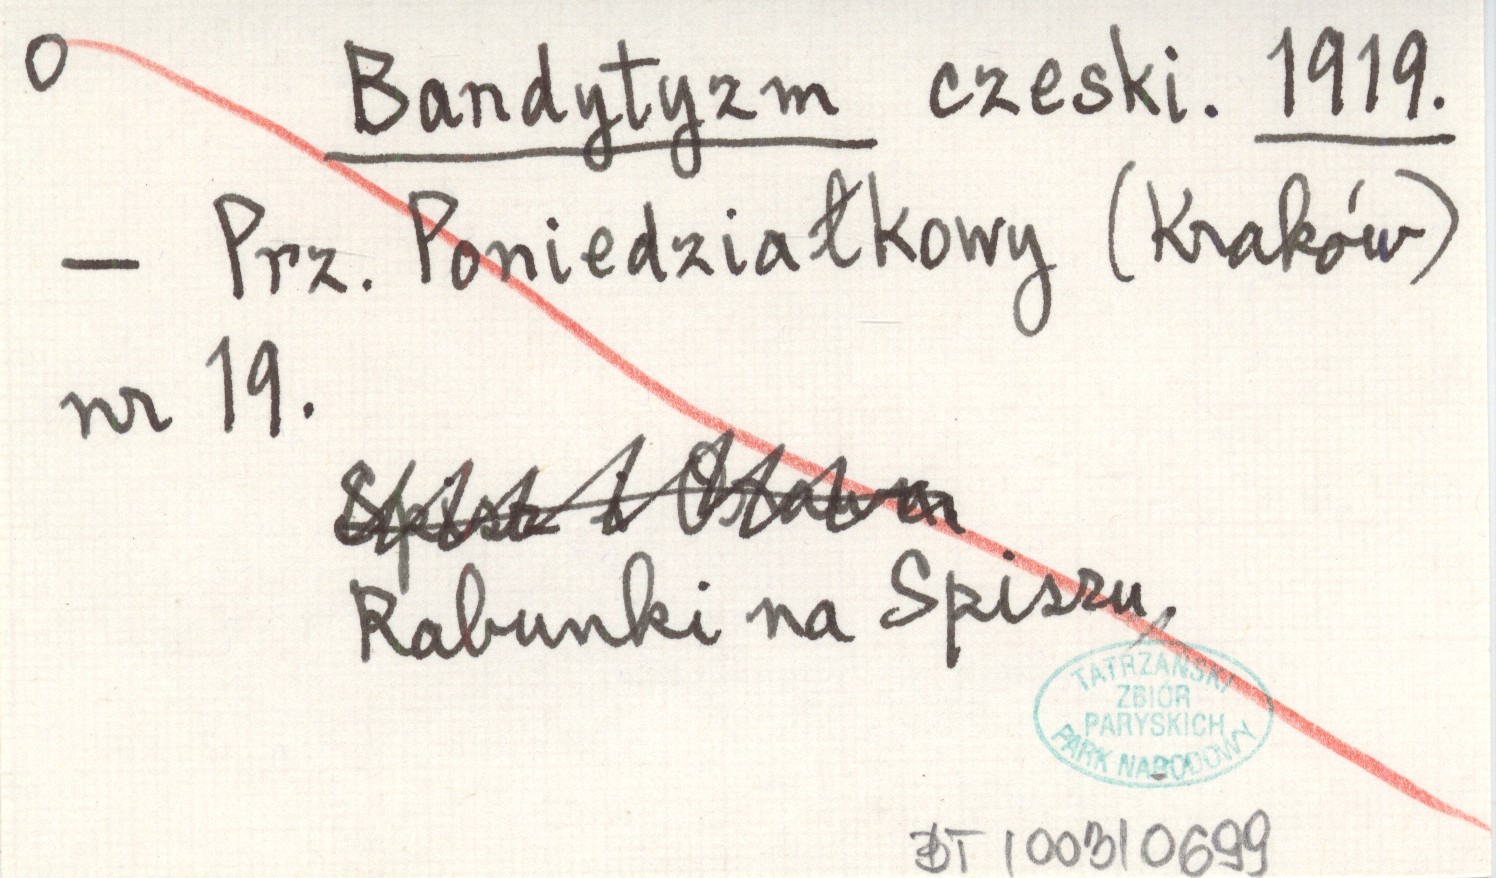 O
Bandytyzm czeski. 1919.
— Prz. Poniedziałkowy (Kraków)
nr 19.
Spisz i Orawa
Rabunki na Spiszu.
TATRZAŃSKI
ZBIÓR
PARYSKICH
PARK NARODOWY
BT 10031 0699